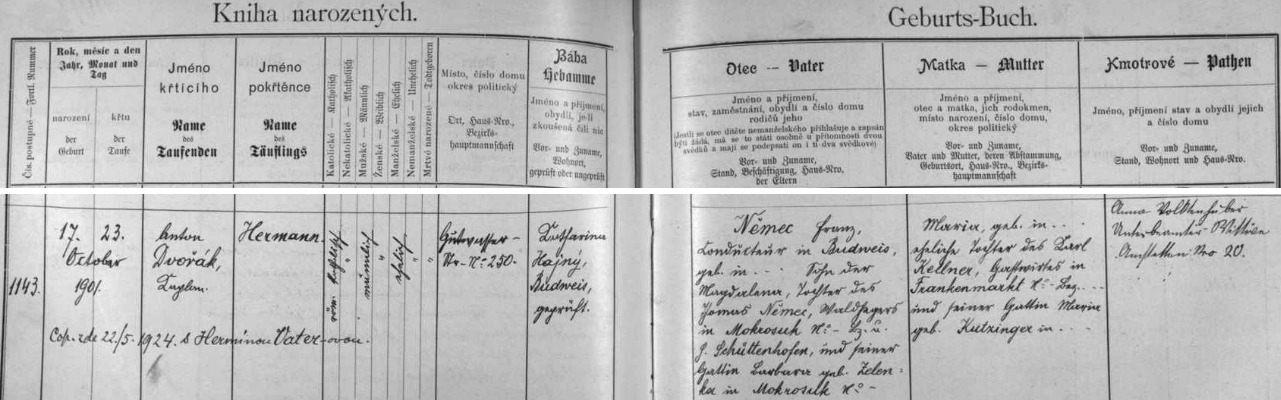 Kniha narozených.
Geburts-Buch.
Čís. postupné — Fortl. Nummer
Rok, měsíc a den
Jahr, Monat und
Tag
narození
der
Geburt
křtu
der
Taufe
Jméno
křtícího
Name
des
Taufenden
Jméno
pokřtěnce
Name
des
Täuflings
Katolické — Katholisch
Nekatolické — Akatholisch
Mužské — Männlich
Ženské — Weiblich
Manželské — Ehelich
Nemanželské — Unehelich
Mrtvě narozené — Todtgeboren
Místo, číslo domu
okres politický
Ort, Haus-Nro.,
Bezirks-
hauptmannschaft
Bába
Hebamme
Jméno a příjmení,
obydlí, je-li
zkoušená čili nic
Vor- und Zuname,
Wohnort,
geprüft oder ungeprüft
Otec — Vater
Jméno a příjmení,
stav, zaměstnání, obydlí a číslo domu
rodičů jeho
(Jestli se otec dítěte nemanželského přihlašuje a zapsán
býti žádá, má se to státi osobně u přítomnosti dvou
svědků a mají se podepsati on i ti dva svědkové)
Vor- und Zuname,
Stand, Beschäftigung, Haus-Nro.,
der Eltern
Matka — Mutter
Jméno a příjmení,
otec a matka, jich rodokmen,
místo narození, číslo domu,
okres politický
Vor- und Zuname,
Vater und Mutter, deren Abstammung,
Geburtsort, Haus-Nro., Bezirks-
hauptmannschaft
Kmotrové — Pathen
Jméno, příjmení stav a obydlí jejich
a číslo domu
Vor- und Zuname,
Stand, Wohnort und Haus-Nro.
1143.
17. 23.
October
1901.
Anton
Dvořák,
Kaplan.
Hermann.
röm. katholisch
"
männlich
"
ehelich
"
"
Gutwasser-
Str. - No 250.
Katharina
Hajný,
Budweis,
geprüft.
Cop. zde 22/5. 1924. s Herminou Vater-ovou.
Němec Franz,
Conducteur in Budweis,
geb. in . . . Sohn der
Magdalena, Tochter des
Thomas Němec, Waldhegers
in Mokrosuk No - Bz. u.
G. Schüttenhofen, und seiner
Gattin Barbara geb. Zelen-
ka in Mokrosuk No -
Maria, geb. in . . .
eheliche Tochter des Karl
Kellner, Gastwirtes in
Frankenmarkt No - Bez. . . .
und seiner Gattin Maria
geb. Kutzinger in . . .
Anna
Unterbeamter-Wittwe
Amstetten Nro 20.